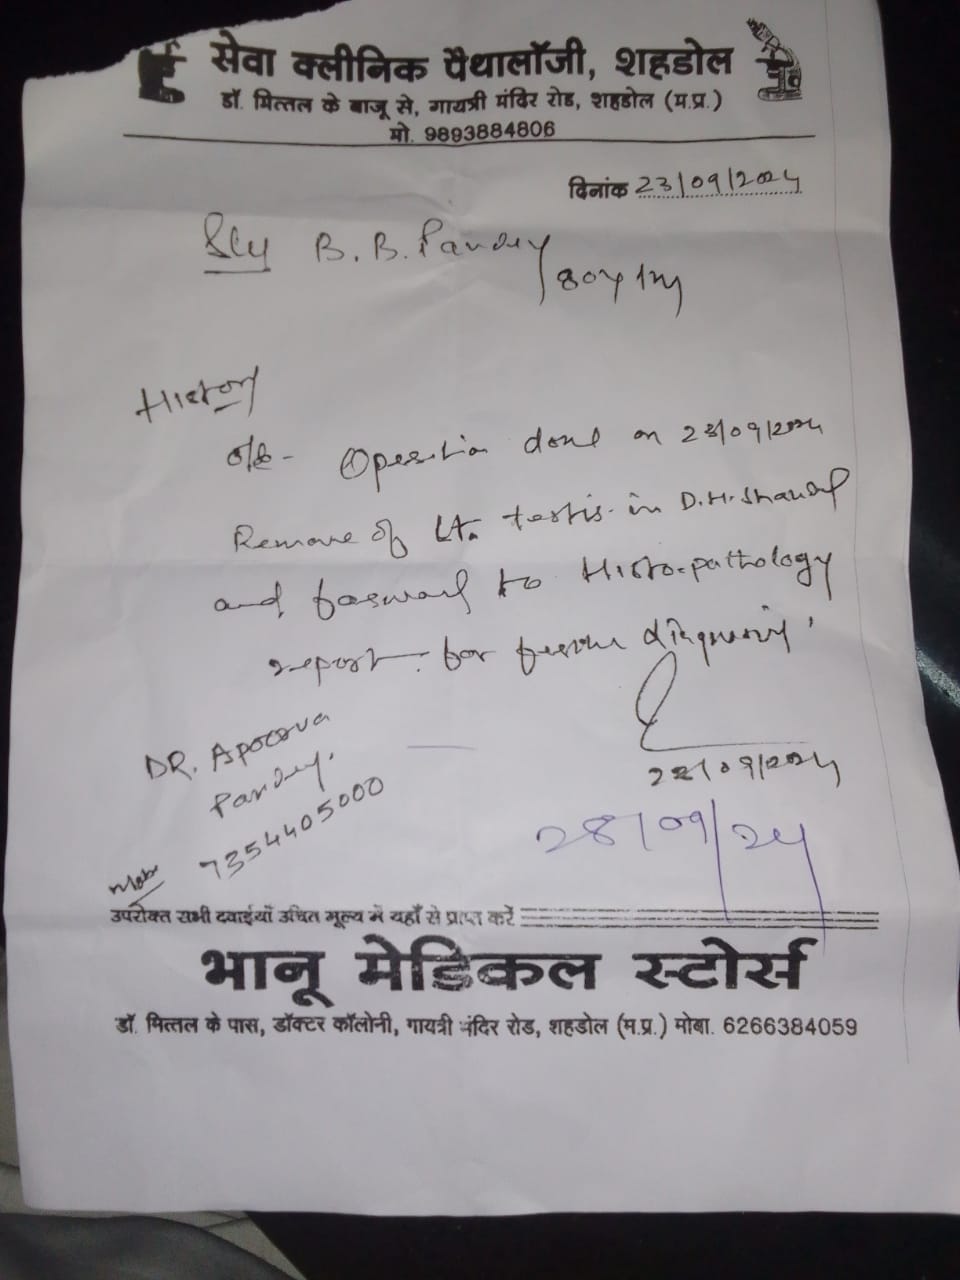 सेवा क्लीनिक पैथालॉजी, शहडोल
डॉ. मित्तल के बाजू से, गायत्री मंदिर रोड, शहडोल (म.प्र.)
मो. 9893884806
दिनांक 23/09/2024
B. B. Pandey
/80y/M
History
Operation done on 23/09/2024
Remove of Lt. testis in D.H. Shahdol
and forward to Histo-pathology
report for diagnosis
23/09/2024
DR. Apoorva
Pandey.
Mob. 7354405000
28/09/24
उपरोक्त सभी दवाईयाँ उचित मूल्य में यहाँ से प्राप्त करें
भानू मेडिकल स्टोर्स
डॉ. मित्तल के पास, डॉक्टर कॉलोनी, गायत्री मंदिर रोड, शहडोल (म.प्र.) मोबा. 6266384059